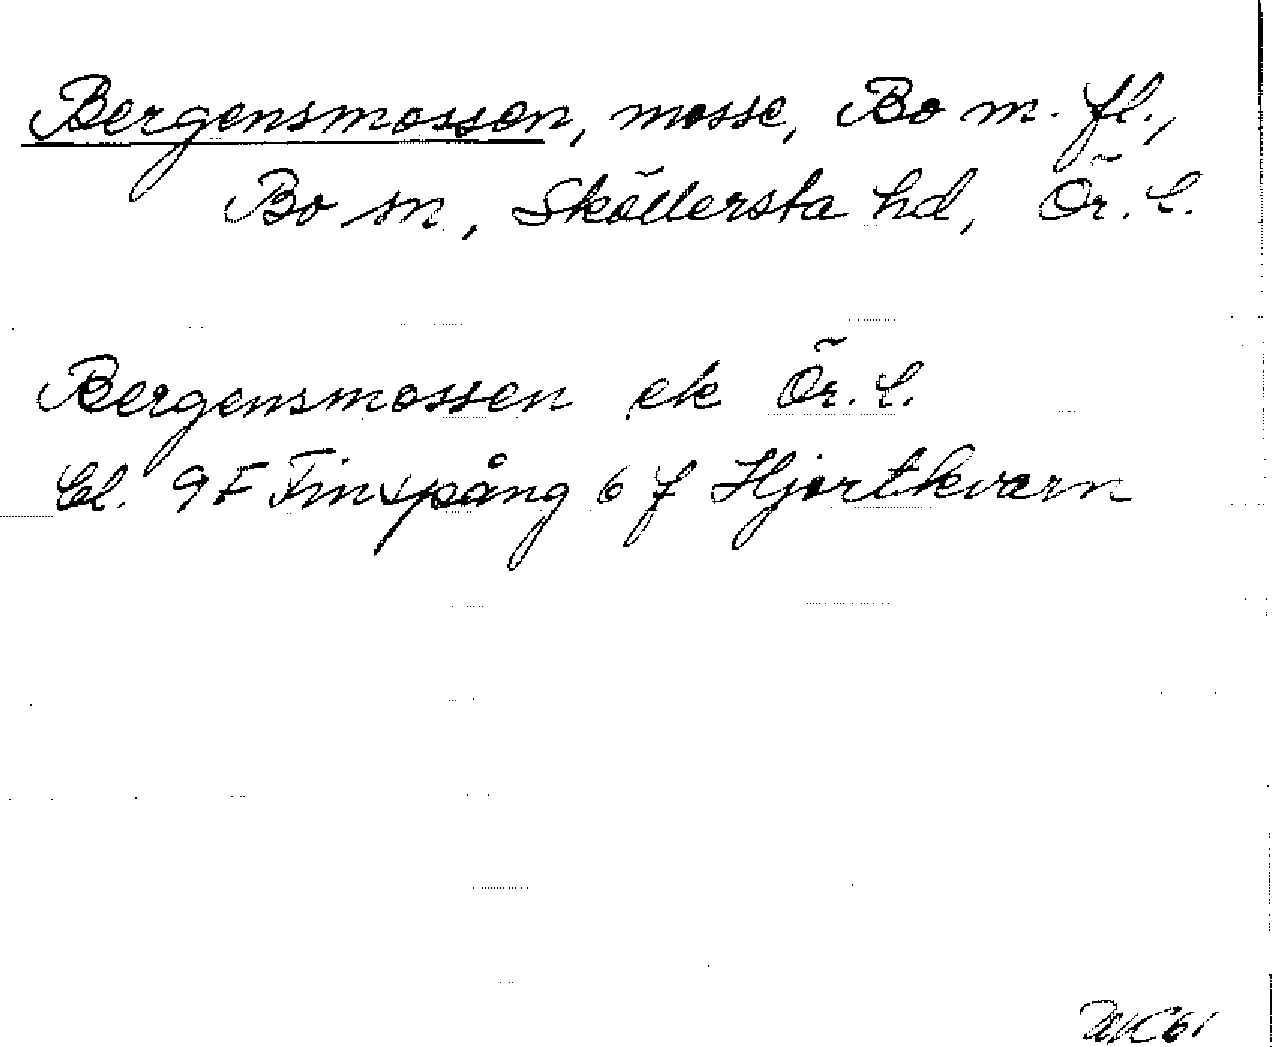 Bergensmossen, mosse, Bo m. fl.,
Bo sn, Sköllersta hd, Ör. l.
Bergensmossen ek Ör. l.
bl. 9F Finspång 6 f Hjortkvarn